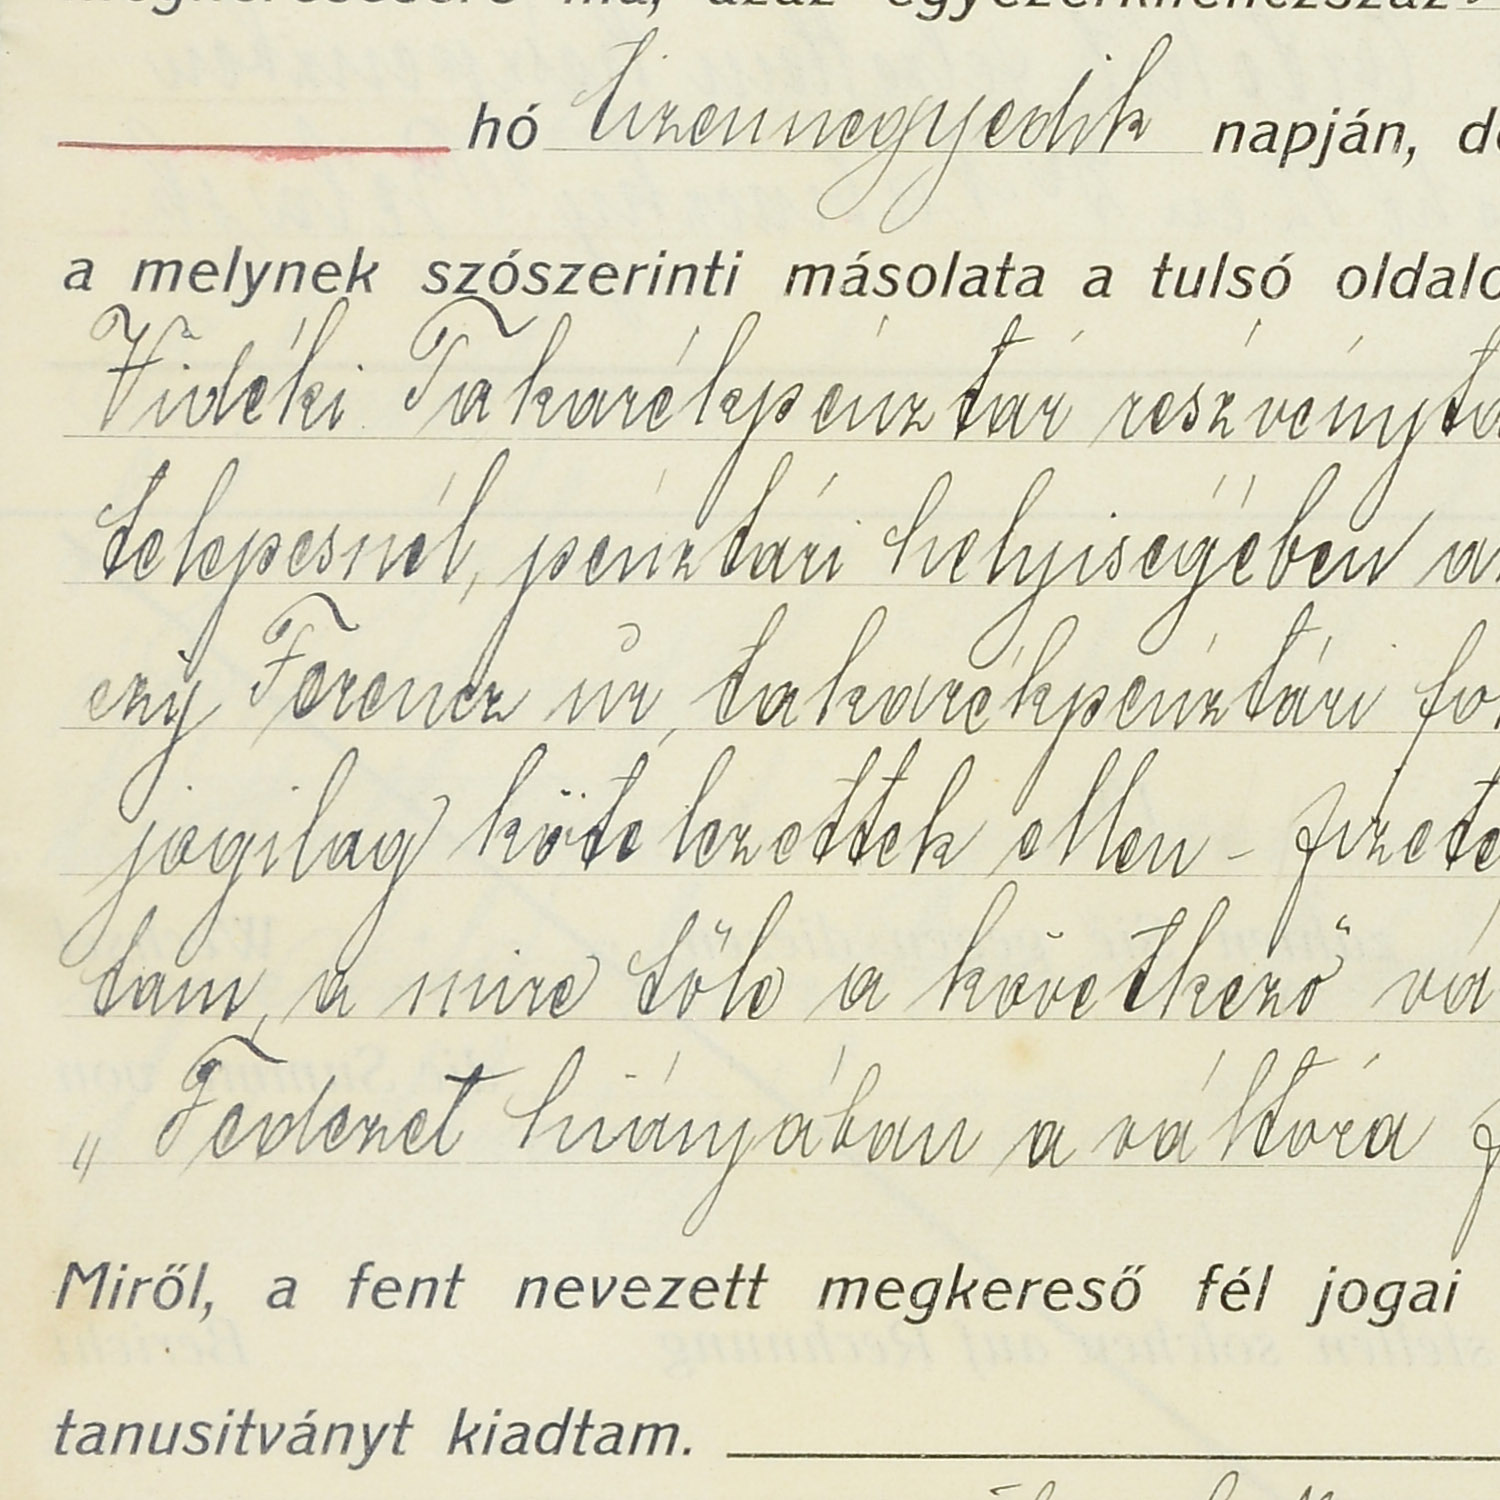 megkeresésére ma, azaz egyezerkilenczszáz
hó tizennegyedik napján, de
a melynek szószerinti másolata a tulsó oldalo
Vidéki Takarékpénztár részvényta
telepesnél, pénztári helyiségében a
eky Ferencz úr, takarékpénztári fo
jogilag kötelezettek ellen - fizeté
tam, a mire tőle a következő vá
„Fedezet hiányában a váltóra f
Miről, a fent nevezett megkereső fél jogai
tanusitványt kiadtam.